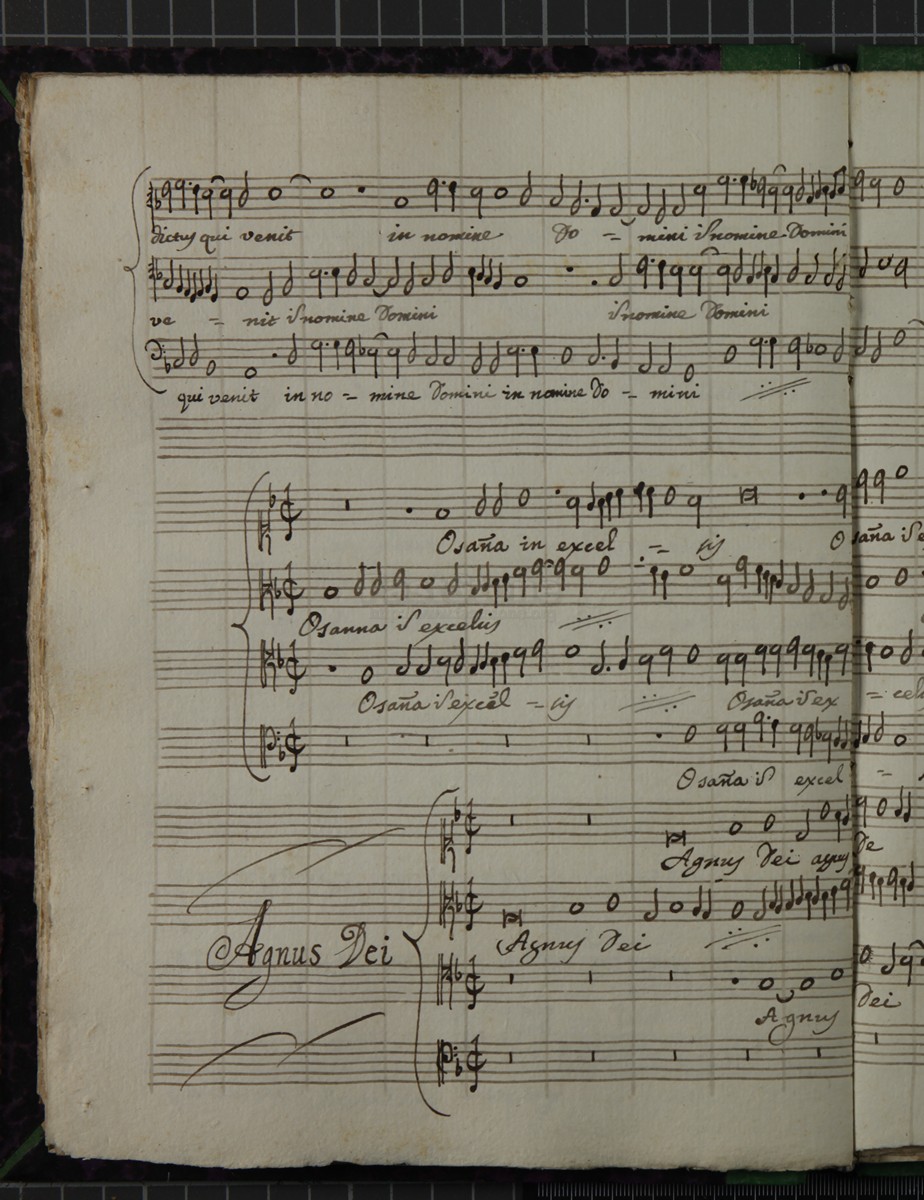 dictus qui venit in nomine Do = mini i nomine Domini
ve = nit i nomine Domini i nomine Domini
qui venit in no = mine Domini in nomine Do = mini
Osaña in excel = sis O saña i
Osanna i excelsis
Osaña i excel = sis Osaña i ex = cel
Osaña i excel =
Agnus Dei agnus De
Agnus Dei
Agnus Dei
Agnus Dei